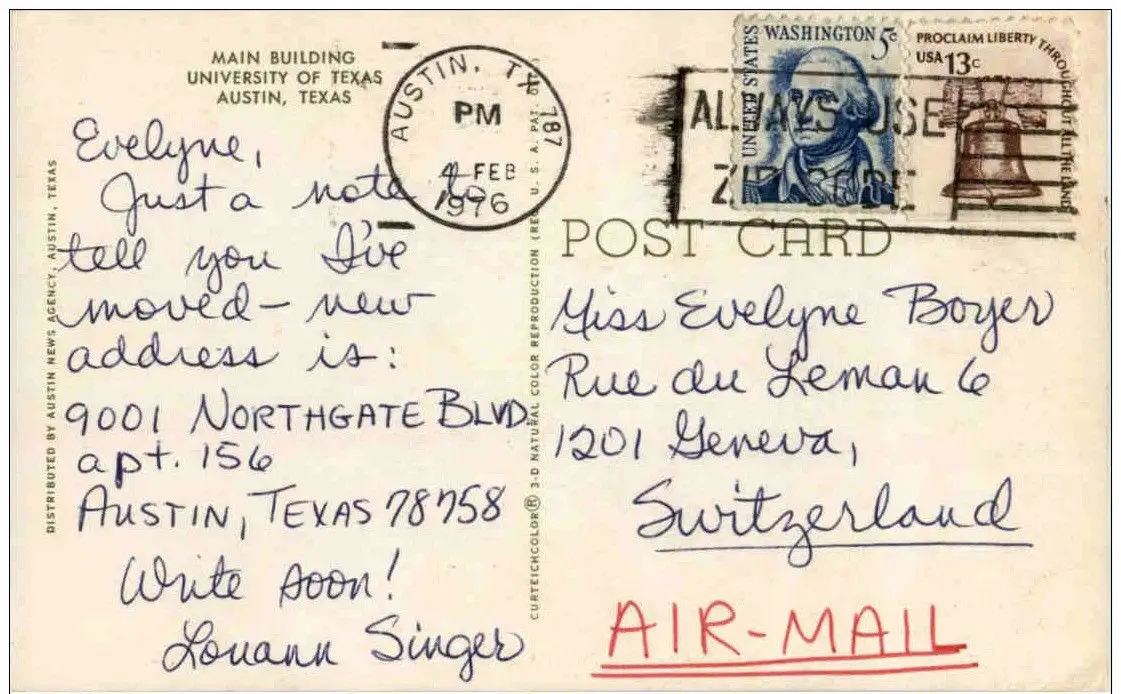 MAIN BUILDING
UNIVERSITY OF TEXAS
AUSTIN, TEXAS
Evelyne,
Just a note to
tell you I've
moved - new
address is:
9001 NORTHGATE BLVD.
apt. 156
AUSTIN, TEXAS 78758
Write soon!
Louann Singer
DISTRIBUTED BY AUSTIN NEWS AGENCY, AUSTIN, TEXAS
CURTEICHCOLOR® 3-D NATURAL COLOR REPRODUCTION (REG. U. S. A. PAT.
AUSTIN, TX 787
PM
4 FEB
1976
ALWAYS USE
ZIP CODE
UNITED STATES
WASHINGTON 5c
PROCLAIM LIBERTY THROUGHOUT ALL THE LAND
USA 13c
POST CARD
Miss Evelyne Boyer
Rue du Leman 6
1201 Geneva,
Switzerland
AIR-MAIL